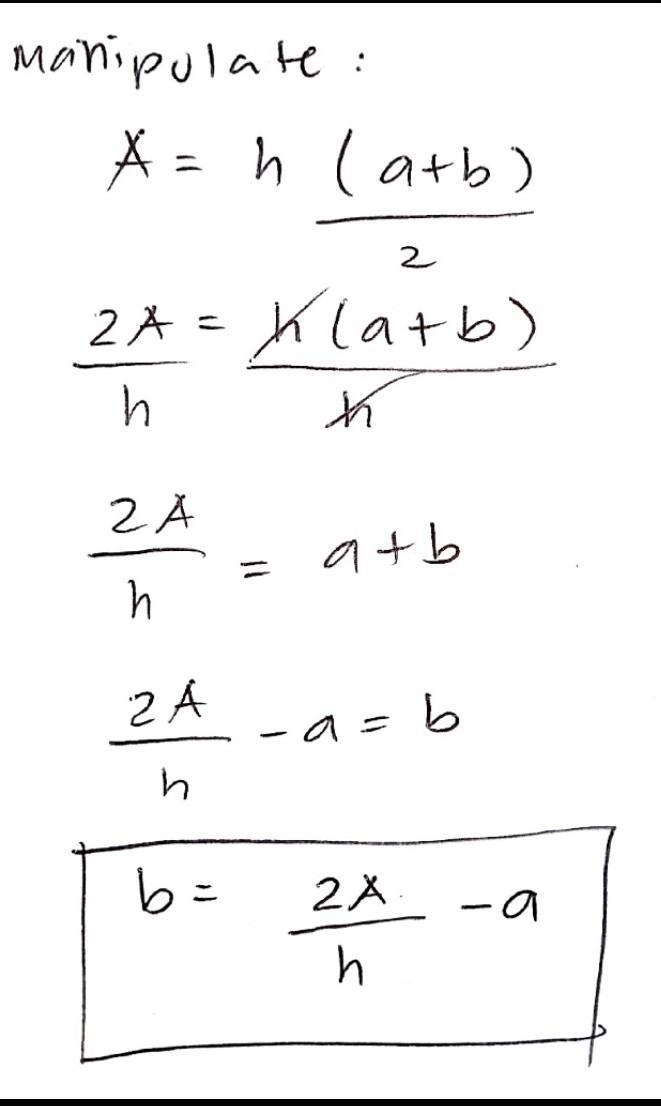 Manipulate :
A = h (a+b)
2
2A = h(a+b)
h h
2A
h = a+b
2A
h - a = b
b = 2A - a
h